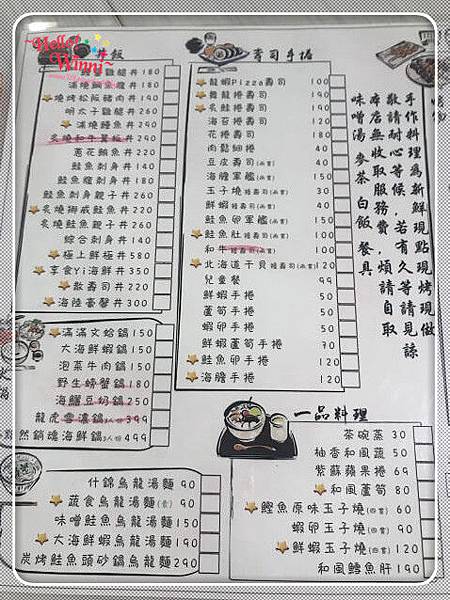 Hello! Winni~
丼飯
雞腿丼 180
滿燒鯛魚丼 180
燒烤松阪豬肉丼 190
明太子雞腿丼 240
滿燒鰻魚丼 240
炙燒和牛 丼 290
蔥花鮪魚丼 220
鮭魚刺身丼 220
鮭魚刺身親子丼 260
炙燒挪威鮭魚丼 220
炙燒鮭魚親子丼 260
綜合刺身丼 140
極上鮮極丼 580
享食Yi海鮮丼 350
散壽司丼 220
海陸豪奢丼 300
滿滿文蛤鍋 150
大海鮮蝦鍋 150
泡菜牛肉鍋 150
野生螃蟹鍋 180
海鱺豆奶鍋 250
龍虎雪濃鍋 3人份 399
然銷魂海鮮鍋 3人份 499
什錦烏龍湯麵 90
蔬食烏龍湯麵(素) 90
味噌鮭魚烏龍湯麵 150
大海鮮蝦烏龍湯麵 190
炭烤鮭魚頭砂鍋烏龍湯麵 290
壽司手捲
龍蝦Pizza壽司 100
舞龍捲壽司 190
炙鮭捲壽司 190
海苔捲壽司 90
花捲壽司 180
肉鬆細捲 40
豆皮壽司(兩貫) 40
海膽軍艦 150
玉子燒 握壽司(兩貫) 30
鮮蝦 握壽司(兩貫) 40
鮭魚卵軍艦 150
鮭魚肚 握壽司(兩貫) 100
和牛 握壽司(兩貫) 100
北海道干貝 握壽司(兩貫) 120
兒童餐 99
鮮蝦手捲 50
蘆筍手捲 50
蝦卵手捲 50
鮮蝦蘆筍手捲 70
鮭魚卵手捲 120
海膽手捲 120
手作料理為新鮮現點現烤現做
敬請耐心等候,若有久等請見諒
本店無收取服務費,煩請自取
味噌湯、麥茶、白飯、餐具
一品料理
茶碗蒸 30
柚香和風蔬 50
紫蘇蘋果捲 69
和風蘆筍 80
鰹魚原味玉子燒(四貫) 60
蝦卵玉子燒(四貫) 90
鮮蝦玉子燒(四貫) 120
和風鱈魚肝 190